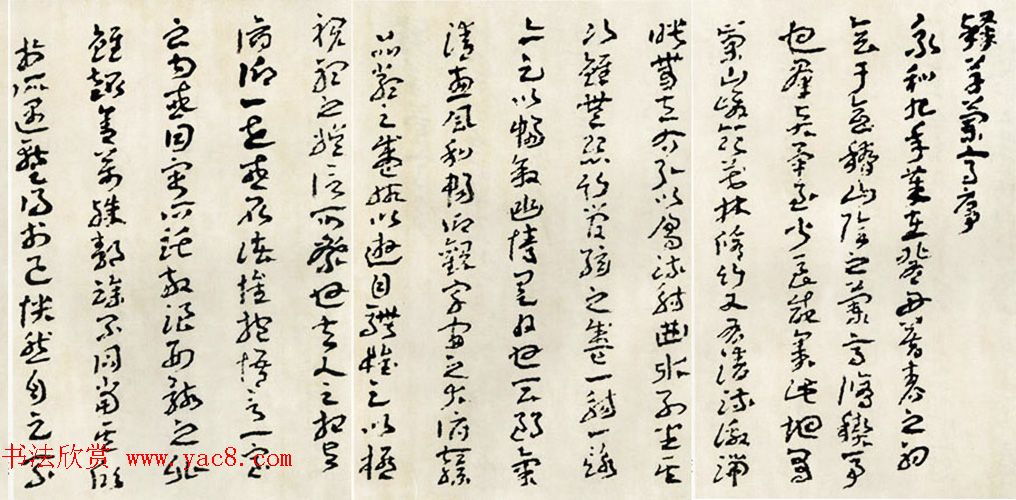 蘭亭序
永和九年歲在癸丑暮春之初
會于會稽山陰之蘭亭脩稧事
也羣賢畢至少長咸集此地有
崇山峻領茂林脩竹又有清流激湍
暎帶左右引以為流觴曲水列坐其
次雖無絲竹管弦之盛一觴一詠
亦足以暢敘幽情是日也天朗氣
清惠風和暢仰觀宇宙之大俯察
品類之盛所以遊目騁懷足以極
視聽之娛信可樂也夫人之相與
俯仰一世或取諸懷抱悟言一室
之内或因寄所託放浪形骸之外
雖趣舍萬殊靜躁不同當其欣
於所遇暫得於己快然自足
书法欣赏 www.yac8.com